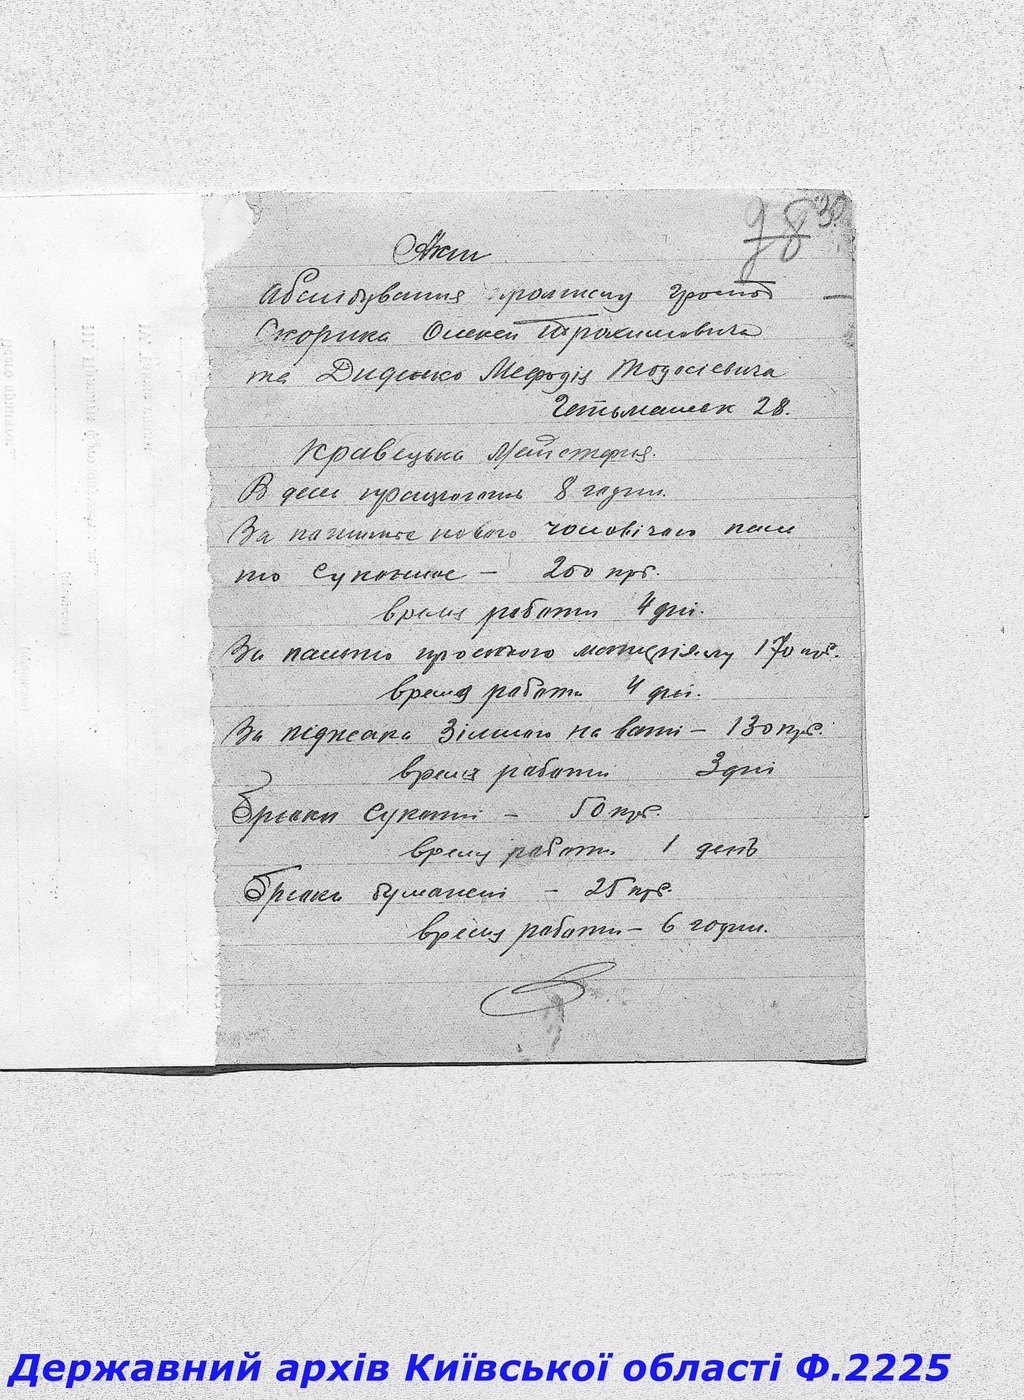 78 30
Акт
Абслідування громад
Скорика Олексія Трохимовича
та Диденко Мефодія Тодосієвича
Гетьманск 28.
Кравецька Майстерня.
В день працюють 8 годин.
За нового чоловічого паль
то суконне — 200 крб.
время работи 4 дні.
За пальто простого матеріялу 170 крб.
время работи 4 дні.
За піджака зімнього на ваті — 130 крб.
время работи 3 дні
Брюки суконні — 50 крб.
время работи 1 день
Брюки бумажні — 25 крб.
время работи — 6 годин.
Державний архів Київської області Ф.2225